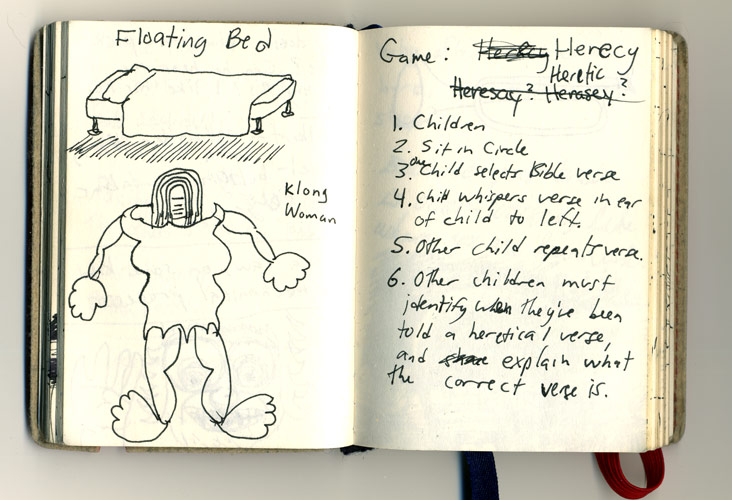 Floating Bed
Klong
Woman
Game: Herecy
Heretic
Heresay? Herasey?
1. Children
2. Sit in Circle
3. one Child selects Bible verse
4. Child whispers verse in ear
of child to left.
5. Other child repeats verse.
6. Other children must
identify when they've been
told a heretical verse,
and explain what
the correct verse is.